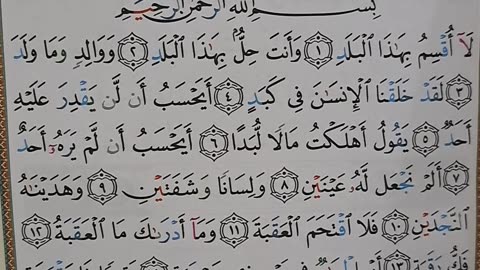 بِسْمِ ٱللَّهِ ٱلرَّحْمَٰنِ ٱلرَّحِيمِ
لَآ أُقْسِمُ بِهَٰذَا ٱلْبَلَدِ ١ وَأَنتَ حِلٌّۢ بِهَٰذَا ٱلْبَلَدِ ٢ وَوَالِدٍ وَمَا وَلَدَ
٣ لَقَدْ خَلَقْنَا ٱلْإِنسَٰنَ فِى كَبَدٍ ٤ أَيَحْسَبُ أَن لَّن يَقْدِرَ عَلَيْهِ
أَحَدٌ ٥ يَقُولُ أَهْلَكْتُ مَالًا لُّبَدًا ٦ أَيَحْسَبُ أَن لَّمْ يَرَهُۥٓ أَحَدٌ
٧ أَلَمْ نَجْعَل لَّهُۥ عَيْنَيْنِ ٨ وَلِسَانًا وَشَفَتَيْنِ ٩ وَهَدَيْنَٰهُ
ٱلنَّجْدَيْنِ ١٠ فَلَا ٱقْتَحَمَ ٱلْعَقَبَةَ ١١ وَمَآ أَدْرَىٰكَ مَا ٱلْعَقَبَةُ ١٢
فَكُّ رَقَبَةٍ ١٣